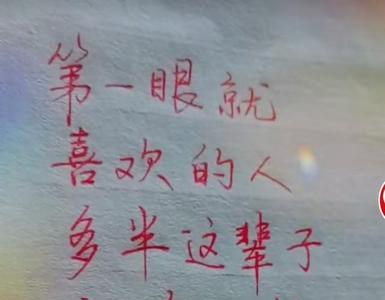 第一眼就
喜欢的人
多半这辈子